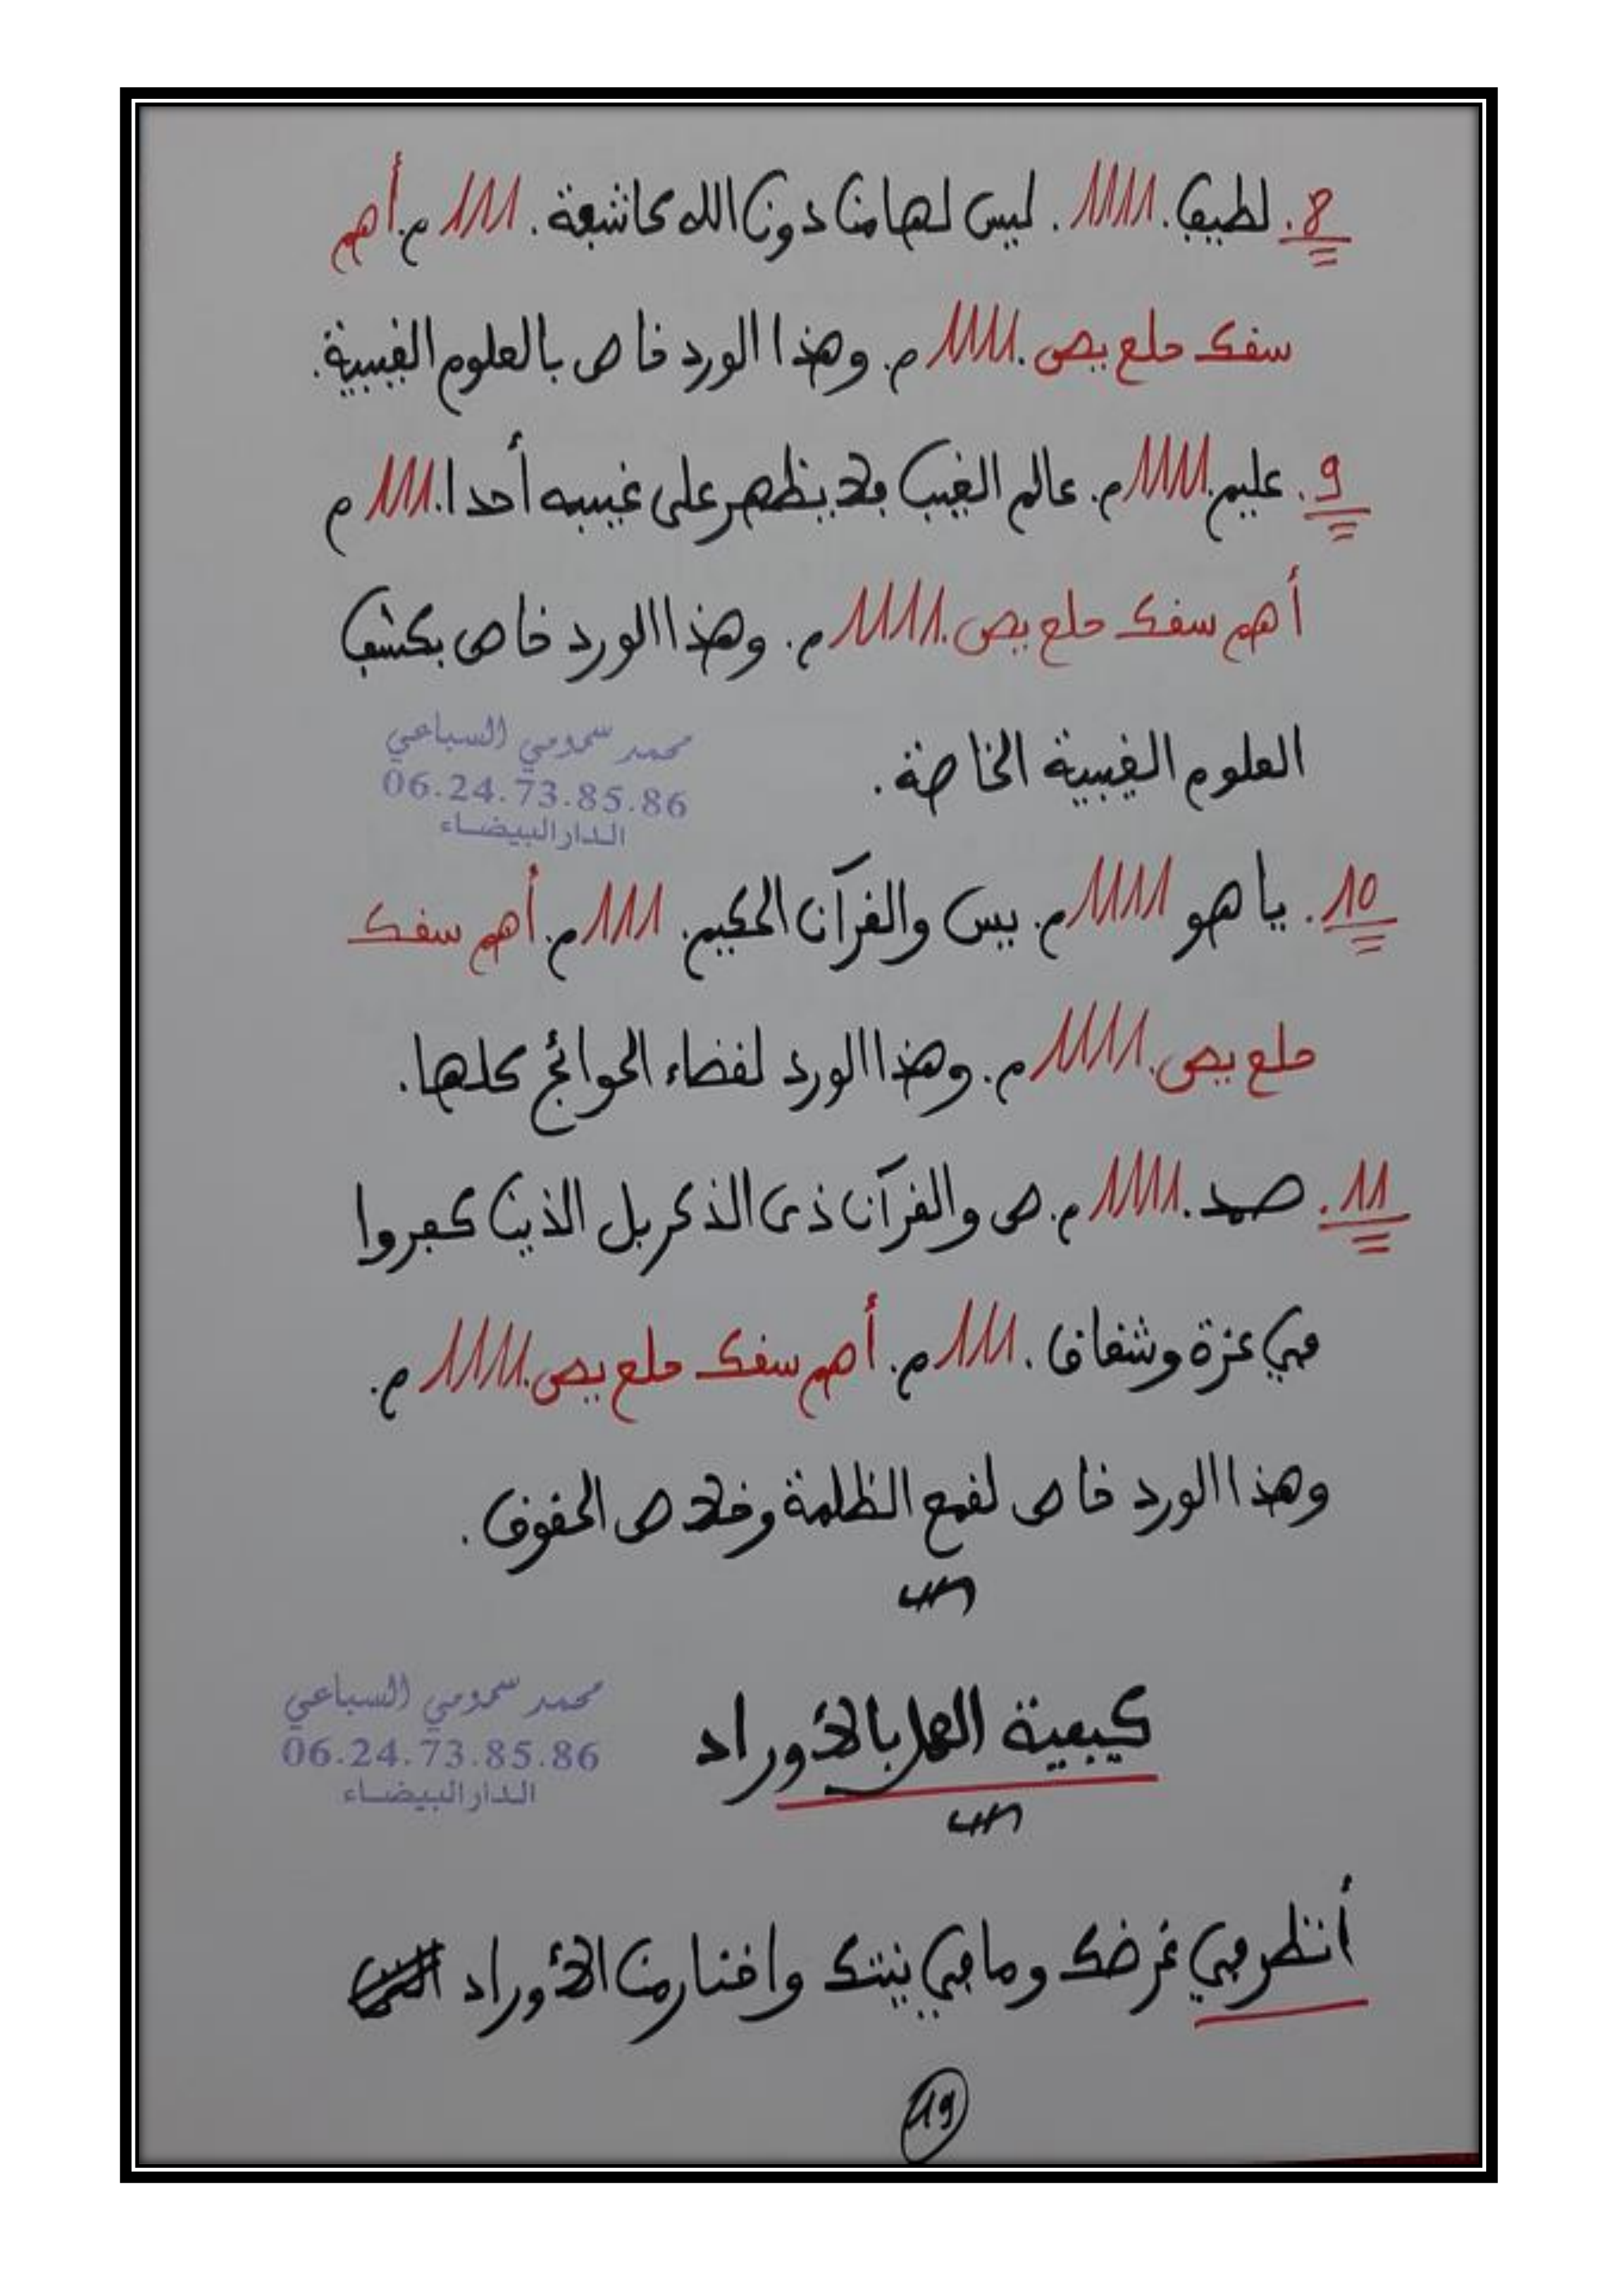 8. لطيف. 11111. ليس لها من دون الله كاشفة. 1111 م. أهم
سقك حلع يص. 11111 م. وهذا الورد خاص بالعلوم الغيبية.
9. عليم. 11111 م. عالم الغيب فلا يظهر على غيبه أحدا. 1111 م
أهم سقك حلع يص. 11111 م. وهذا الورد خاص بكشف
العلوم الغيبية الخاصة.
محمد سمومي السباعي
06.24.73.85.86
الدار البيضاء
10. يا هو 11111 م. يس والقرآن الحكيم. 1111 م. أهم سقك
حلع يص. 11111 م. وهذا الورد لقضاء الحوائج كلها.
11. صمد. 11111 م. ص والقرآن ذي الذكر بل الذين كفروا
في عزة وشقاق. 1111 م. أهم سقك حلع يص. 11111 م.
وهذا الورد خاص لقمع الظلمة وخلاص الحقوق.
كيفية العمل بالأوراد
محمد سمومي السباعي
06.24.73.85.86
الدار البيضاء
أنظر في غرضك وما في نيتك واختار من الأوراد
19